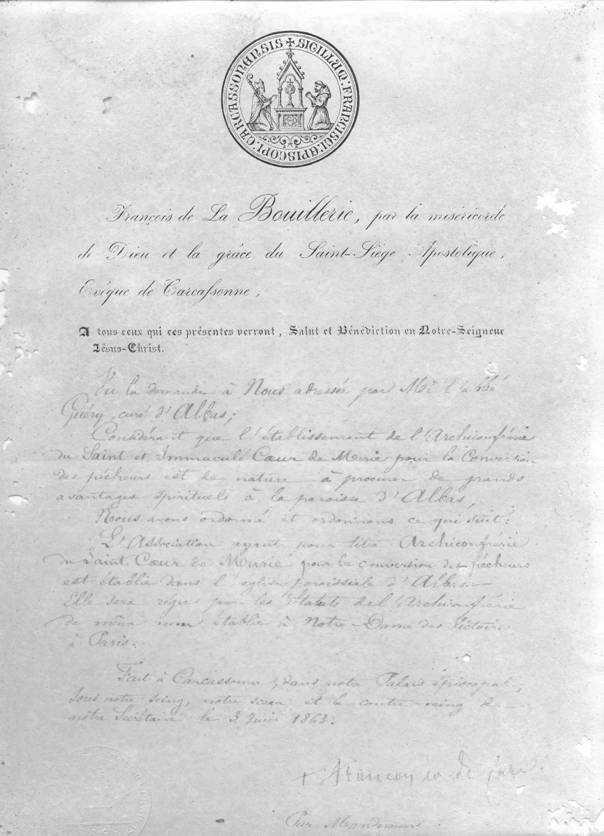 ✝ SIGILLUM · FRANCISCI · EPISCOPI · CARCASSONENSIS
François de La Bouillerie, par la miséricorde
de Dieu et la grâce du Saint-Siège Apostolique,
Evêque de Carcassonne,
A tous ceux qui ces présentes verront, Salut et Bénédiction en Notre-Seigneur
Jésus-Christ.
Vu la demande à Nous adressée par Mr l'abbé
curé d'Albas;
Considérant que l'établissement de l'Archiconfrérie
du Saint et Immaculé Cœur de Marie pour la Conversion
des pécheurs est de nature à procurer de grands
avantages spirituels à la paroisse d'Albas,
Nous avons ordonné et ordonnons ce qui suit:
L'Association ayant pour titre Archiconfrérie
du Saint Cœur de Marie pour la conversion des pécheurs
est établie dans l'église paroissiale d'Albas.
Elle sera régie par les Statuts de l'Archiconfrérie
de même nom établie à Notre-Dame des Victoires
à Paris.
Fait à Carcassonne, dans notre Palais épiscopal,
sous notre seing, notre sceau et le contre-seing de
notre Secrétaire le 3 1863.
✝ François
Par Mandement